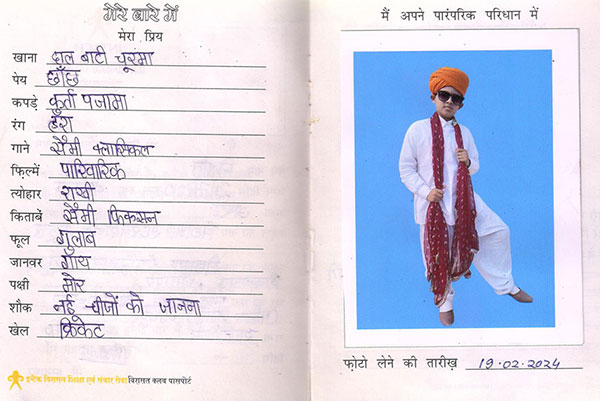 मेरे बारे में
मेरा प्रिय
खाना दाल बाटी चूरमा
पेय छाँछ
कपड़े कुर्ता पजामा
रंग हरा
गाने सैमी क्लासिकल
फ़िल्में पारिवारिक
त्योहार राखी
किताबें सैमी फिकसन
फूल गुलाब
जानवर गाय
पक्षी मोर
शौक नई चीजों को जानना
खेल क्रिकेट
इन्टैक विरासत शिक्षा एवं संचार सेवा विरासत क्लब पासपोर्ट
मैं अपने पारंपरिक परिधान में
फ़ोटो लेने की तारीख़ 19.02.2024